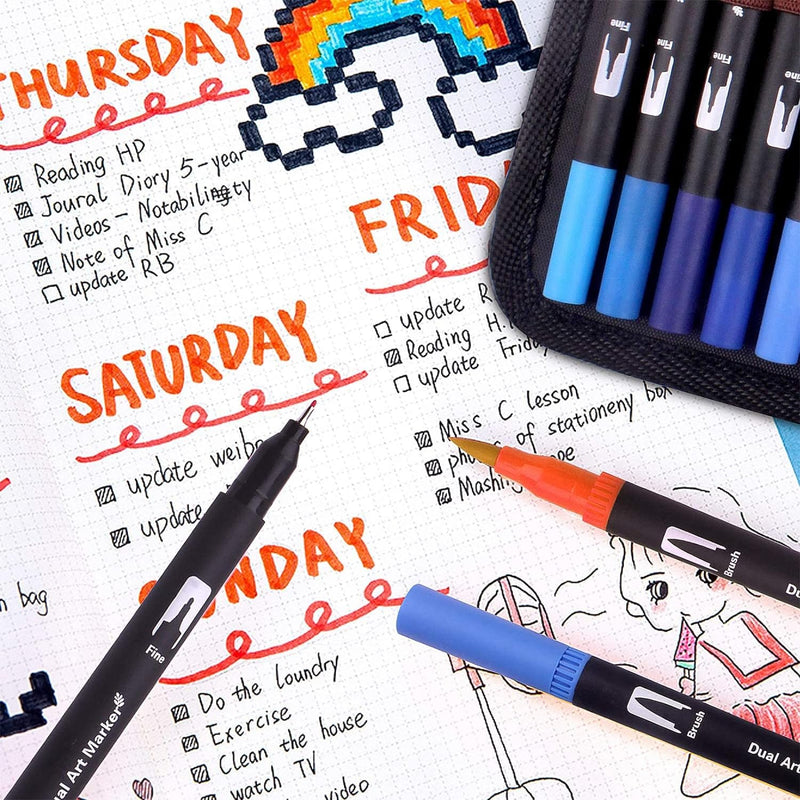 THURSDAY
Reading HP
Joural Diory 5-year
Videos - Notability
Note of Miss C
update RB
FRID
update R
Reading H.
update Frida
Miss C lesson
of stationeny box
Mashin
SATURDAY
update weibo
update
bag
NDAY
Do the loundry
Exercise
Clean the house
watch TV
video
Fine
Fine
Fine
Fine
Fine
Dual Art Marker
Brush
Du
Brush
Dual Art